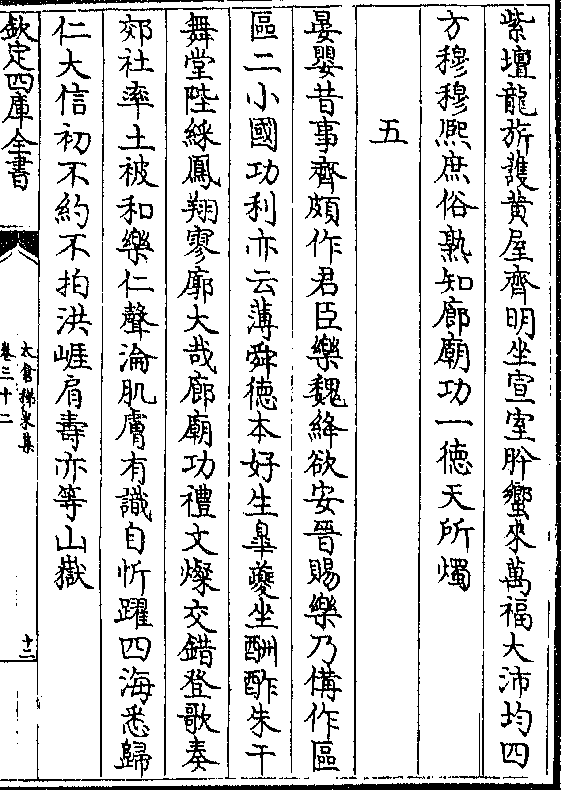 紫壇龍旂䕶黄屋齊明坐宣室肸蠁來萬福大沛均四
方穆穆熈庶俗熟知廊廟功一德天所燭
五
晏嬰昔事齊頗作君臣樂魏絳欲安晉賜樂乃備作區
區二小國功利亦云薄舜徳本好生臯夔坐酬酢朱干
舞堂陛綵鳳翔寥廓大哉廊廟功禮文燦交錯登歌奏
郊社率土被和樂仁聲淪肌膚有識自忻躍四海悉歸
仁大信初不約不拍洪崕肩壽亦等山嶽
欽定四庫全書
太倉稊米集
卷三十二
十二